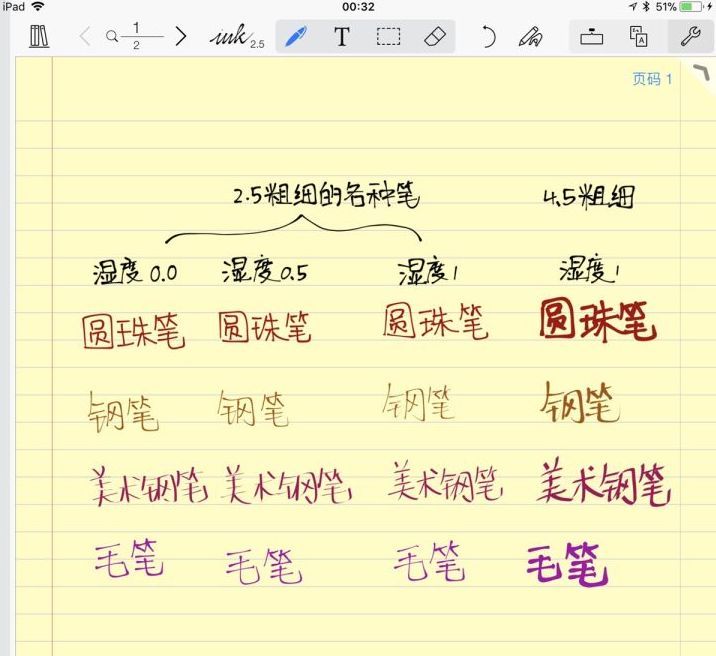 iPad 00:32 51%
1/2 ink 2.5 T
页码 1
2.5粗细的各种笔 4.5粗细
湿度0.0 湿度0.5 湿度1 湿度1
圆珠笔 圆珠笔 圆珠笔 圆珠笔
钢笔 钢笔 钢笔 钢笔
美术钢笔 美术钢笔 美术钢笔 美术钢笔
毛笔 毛笔 毛笔 毛笔